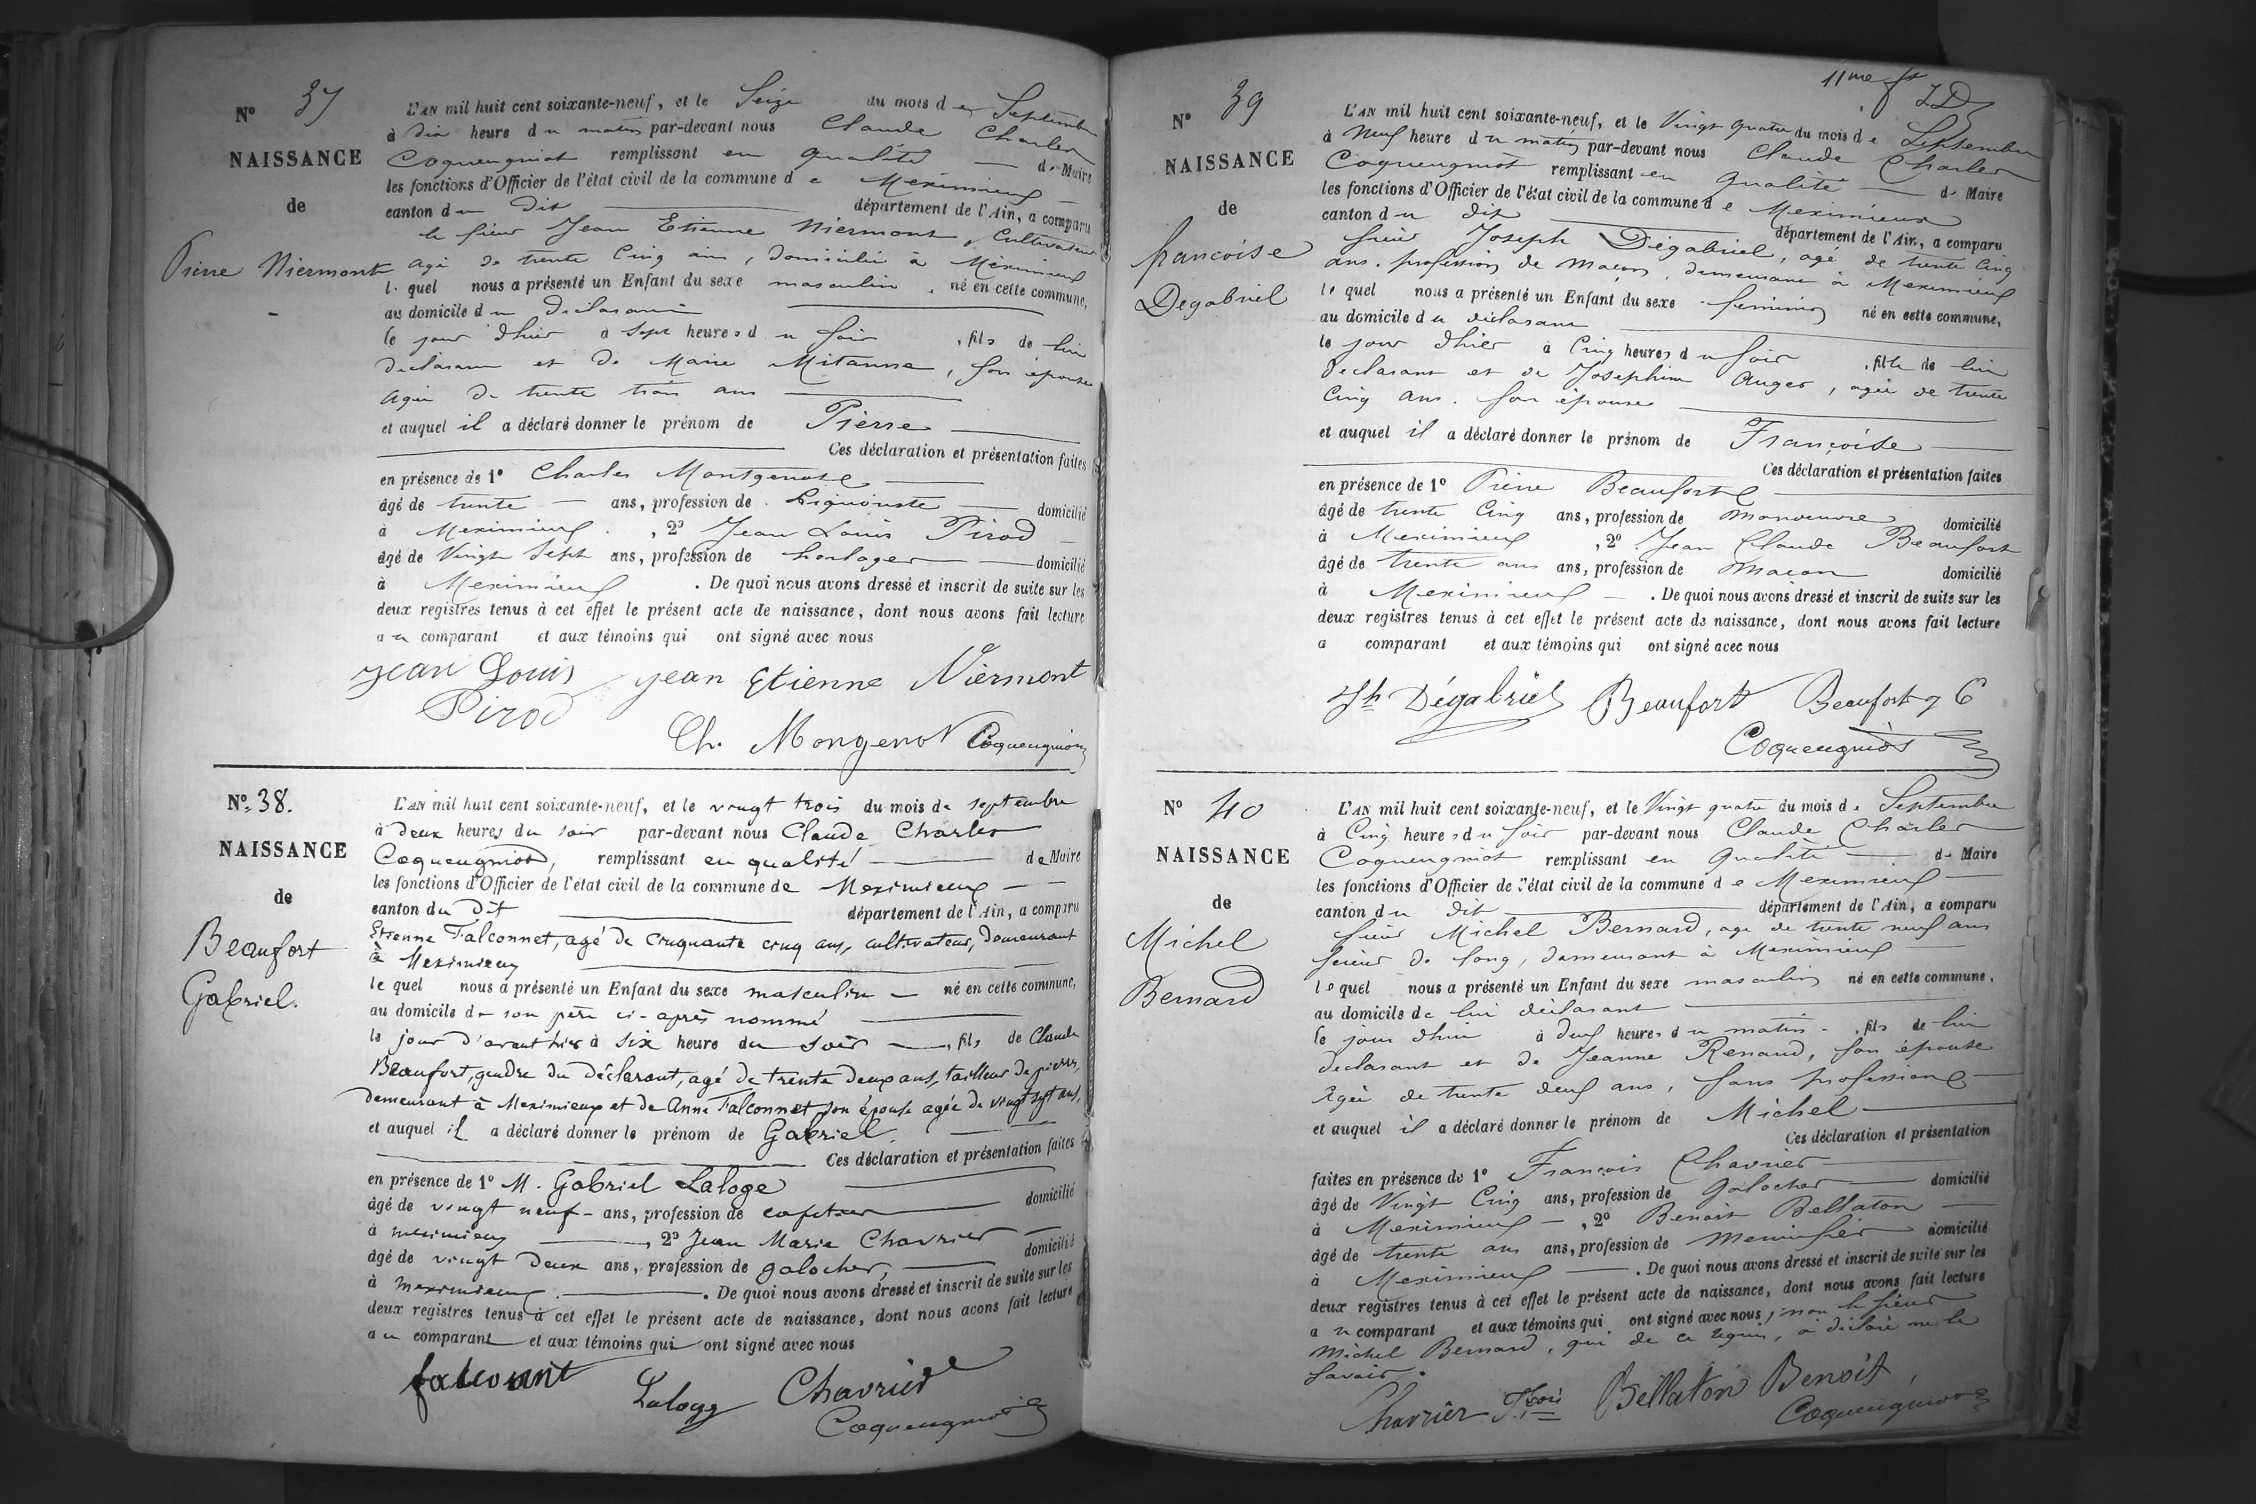 N° 37
NAISSANCE
de
Pierre Niermont
L'AN mil huit cent soixante-neuf, et le Seize du mois de Septembre
à dix heure du matin par-devant nous Claude Charles
Coqueugniot remplissant en qualité de Maire
les fonctions d'Officier de l'état civil de la commune de Meximieux
canton du dit département de l'Ain, a comparu
le sieur Jean Etienne Niermont, Cultivateur
agé de trente Cinq ans, domicilié à Meximieux
lequel nous a présenté un Enfant du sexe masculin, né en cette commune,
au domicile du déclarant
le jour d'hier à sept heures du soir, fils de lui
declarant et de Marie Mitanne, son épouse
agée de trente trois ans
et auquel il a déclaré donner le prénom de Pierre
Ces déclaration et présentation faites
en présence de 1° Charles Montgenot
âgé de trente ans, profession de Liquoriste domicilié
à Meximieux, 2° Jean Louis Pirod
âgé de Vingt Sept ans, profession de horloger domicilié
à Meximieux. De quoi nous avons dressé et inscrit de suite sur les
deux registres tenus à cet effet le présent acte de naissance, dont nous avons fait lecture
au comparant et aux témoins qui ont signé avec nous
Jean Louis Pirod
Jean Etienne Niermont
Ch. Mongenot Coqueugniot
N° 38.
NAISSANCE
de
Beaufort
Gabriel.
L'AN mil huit cent soixante-neuf, et le vingt trois du mois de septembre
à deux heures du soir par-devant nous Claude Charles
Coqueugniot, remplissant en qualité de Maire
les fonctions d'Officier de l'état civil de la commune de Meximieux
canton du Dit département de l'Ain, a comparu
Etienne Falconnet, agé de cinquante cinq ans, cultivateur, demeurant
à Meximieux
lequel nous a présenté un Enfant du sexe masculin né en cette commune,
au domicile de son père ci-après nommé
le jour d'avant hier à six heure du soir, fils de Claude
Beaufort, gendre du déclarant, agé de trente deux ans, tailleur de pierres,
demeurant à Meximieux et de Anne Falconnet son épouse agée de vingt sept ans,
et auquel il a déclaré donner le prénom de Gabriel.
Ces déclaration et présentation faites
en présence de 1° M. Gabriel Laloge
âgé de vingt neuf ans, profession de cafetier domicilié
à meximieux, 2° Jean Marie Chavrier
âgé de vingt deux ans, profession de galocher, domicilié
à meximieux. De quoi nous avons dressé et inscrit de suite sur les
deux registres tenus à cet effet le présent acte de naissance, dont nous avons fait lecture
au comparant et aux témoins qui ont signé avec nous
falconnt Laloge Chavrier
Coqueugniot
11me ft
N° 39
NAISSANCE
de
francoise
Dégabriel
L'AN mil huit cent soixante-neuf, et le Vingt quatre du mois de Septembre
à Neuf heure du matin par-devant nous Claude Charles
Coqueugniot remplissant en qualité de Maire
les fonctions d'Officier de l'état civil de la commune de Meximieux
canton du dit département de l'Ain, a comparu
sieur Joseph Dégabriel, agé de trente Cinq
ans, profession de macon, demeurant à Meximieux
lequel nous a présenté un Enfant du sexe feminin né en cette commune,
au domicile du déclarant
le jour d'hier à Cinq heures du soir, fille de lui
declarant et de Josephine Auger, agée de trente
Cinq ans. son épouse
et auquel il a déclaré donner le prénom de Françoise
Ces déclaration et présentation faites
en présence de 1° Pierre Beaufort
âgé de trente Cinq ans, profession de manoeuvre domicilié
à Meximieux, 2° Jean Claude Beaufort
âgé de trente ans ans, profession de macon domicilié
à Meximieux. De quoi nous avons dressé et inscrit de suite sur les
deux registres tenus à cet effet le présent acte de naissance, dont nous avons fait lecture
a comparant et aux témoins qui ont signé avec nous
Jh Dégabriel Beaufort Beaufort J C
Coqueugniot
N° 40
NAISSANCE
de
Michel
Bernard
L'AN mil huit cent soixante-neuf, et le Vingt quatre du mois de Septembre
à Cinq heures du soir par-devant nous Claude Charles
Coqueugniot remplissant en qualité de Maire
les fonctions d'Officier de l'état civil de la commune de Meximieux
canton du dit département de l'Ain, a comparu
sieur Michel Bernard, agé de trente neuf ans
scieur de long, demeurant à Meximieux
lequel nous a présenté un Enfant du sexe masculin né en cette commune,
au domicile de lui déclarant
le jour d'hier à deux heures du matin, fils de lui
declarant et de Jeanne Renaud, son épouse
agée de trente deux ans, sans profession
et auquel il a déclaré donner le prénom de Michel
Ces déclaration et présentation
faites en présence de 1° François Chavrier
âgé de Vingt Cinq ans, profession de galocher domicilié
à Meximieux, 2° Benoit Bellaton
âgé de trente ans ans, profession de menuisier domicilié
à Meximieux. De quoi nous avons dressé et inscrit de suite sur les
deux registres tenus à cet effet le présent acte de naissance, dont nous avons fait lecture
au comparant et aux témoins qui ont signé avec nous, non le sieur
Michel Bernard, qui de ce requis, a déclaré ne le
savoir.
Chavrier Fçois Bellaton Benoit,
Coqueugniot